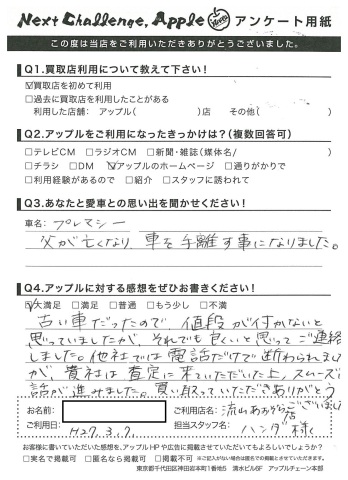 Next Challenge, Apple アンケート用紙
この度は当店をご利用いただきありがとうございました。
Q1.買取店利用について教えて下さい!
☑買取店を初めて利用
□過去に買取店を利用したことがある
利用した店舗: アップル( )店 その他( )
Q2.アップルをご利用になったきっかけは?(複数回答可)
□テレビCM □ラジオCM □新聞・雑誌(媒体名/ )
□チラシ □DM ☑アップルのホームページ □通りがかりで
□利用経験があるので □紹介 □スタッフに誘われて
Q3.あなたと愛車との思い出を聞かせください!
車名: プレマシー
父が亡くなり 車を手離す事になりました。
Q4.アップルに対する感想をぜひお書きください!
☑大満足 □満足 □普通 □もう少し □不満
古い車だったので、値段が付かないと
思っていましたが、それでも良いと思って ご連絡
しました。他社では電話だけで断わられました
が、貴社は査定に来ていただいた上、スムーズに
話が進みました。買い取っていただきありがとう
ございました
お名前:
ご利用店名: 流山おおたかの森店
ご利用日: H27.3.7.
担当スタッフ名: ハンダ 様
お客様に書いていただいた感想を、アップルHPや広告に掲載させていただいてもよろしいでしょうか?
□実名で掲載可 □匿名なら掲載可 □掲載不可 ※ご記入がない場合は匿名での掲載とさせていただきます。
東京都千代田区神田岩本町1番地5 清水ビル6F アップルチェーン本部